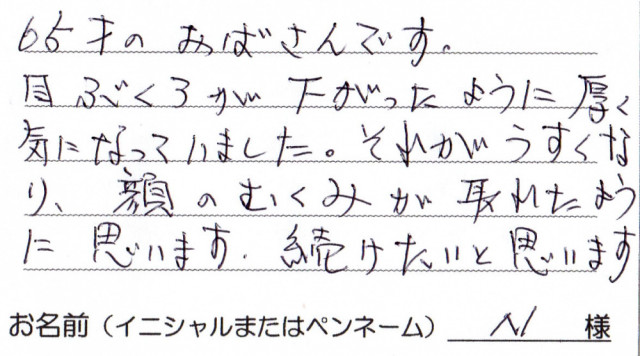 65才の おばさんです。
目ぶくろが 下がったように厚く
気になっていました。それがうすくな
り、顔のむくみが取れたよう
に思います. 続けたいと思います
お名前（イニシャルまたはペンネーム） N 様